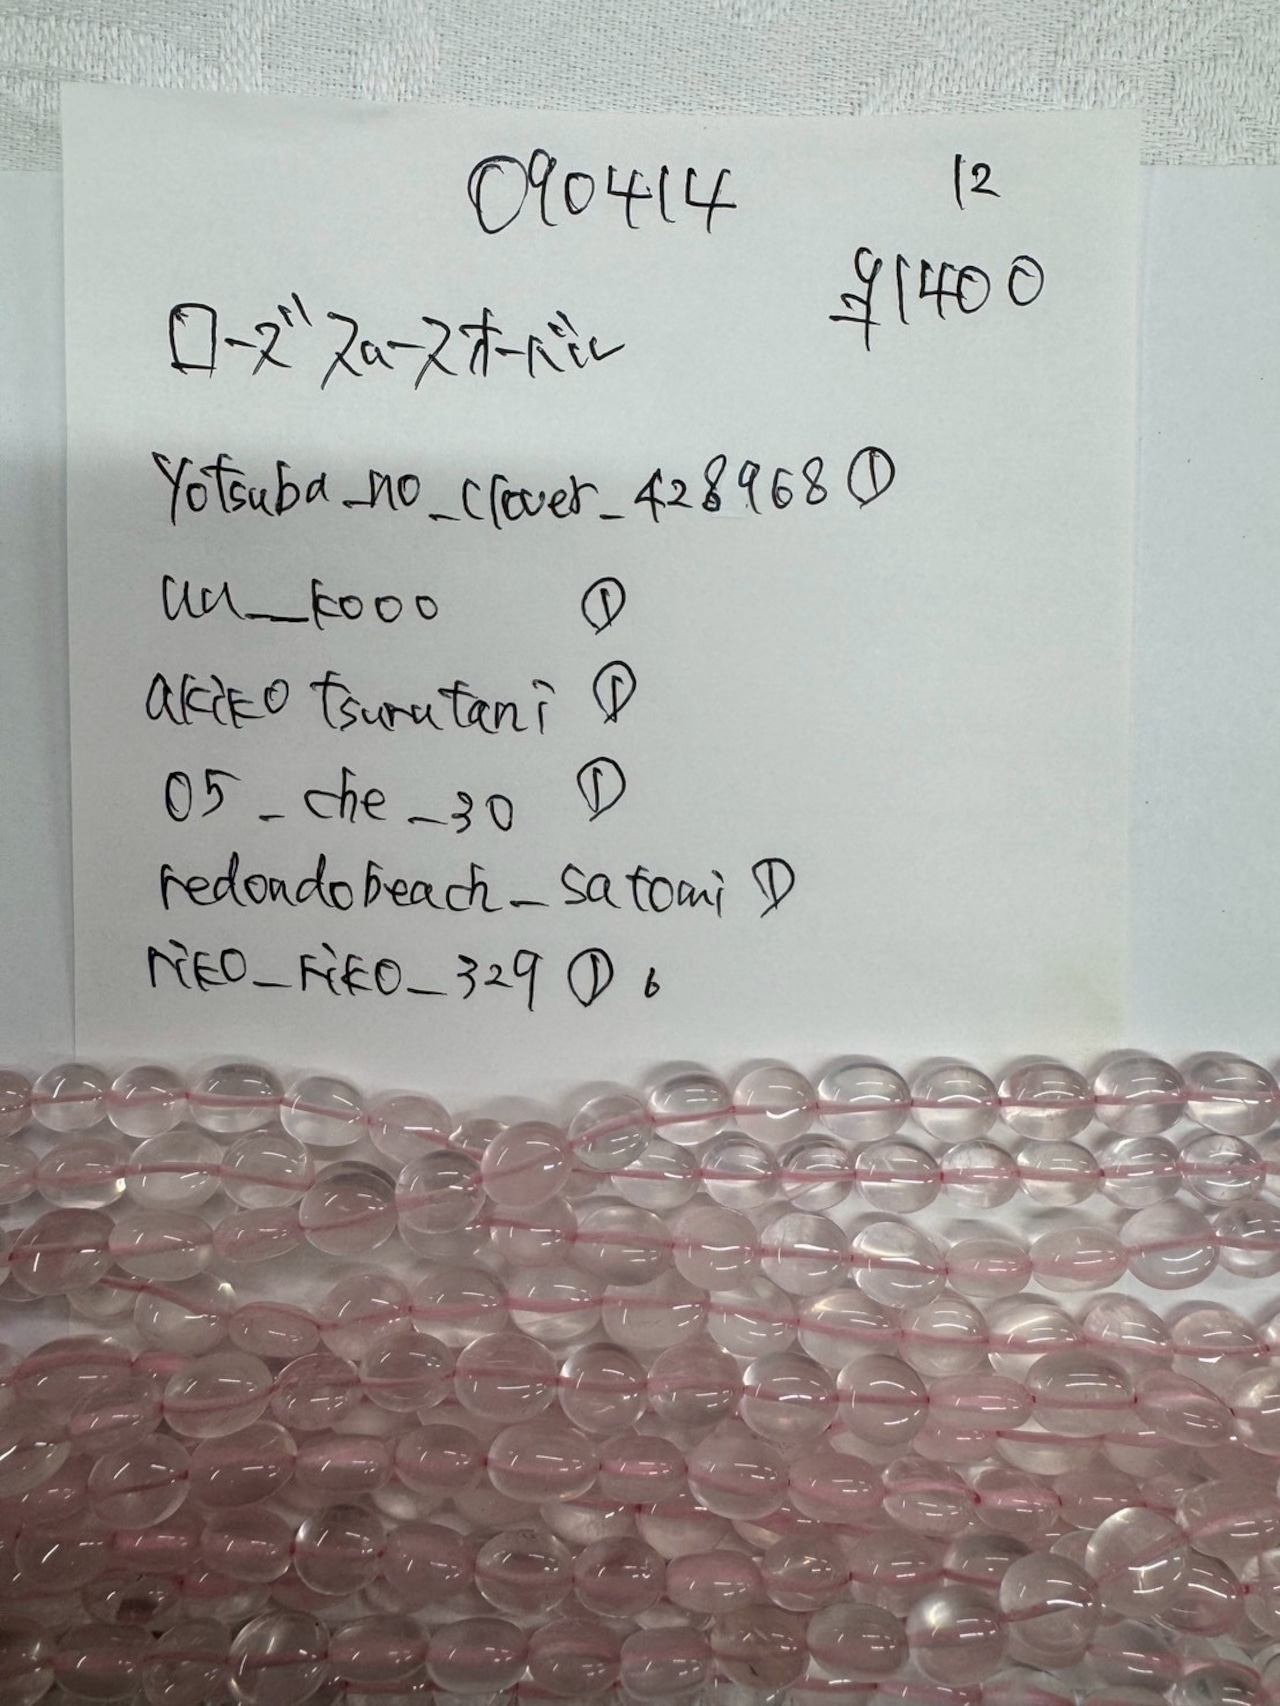 090414
12
¥1400
ローズスムースオーバル
Yotsuba_no_clover_428968①
uu__kooo ①
akiko tsurutani ①
05_che_30 ①
redondobeach_satomi ①
riko_riko_329 ① 6